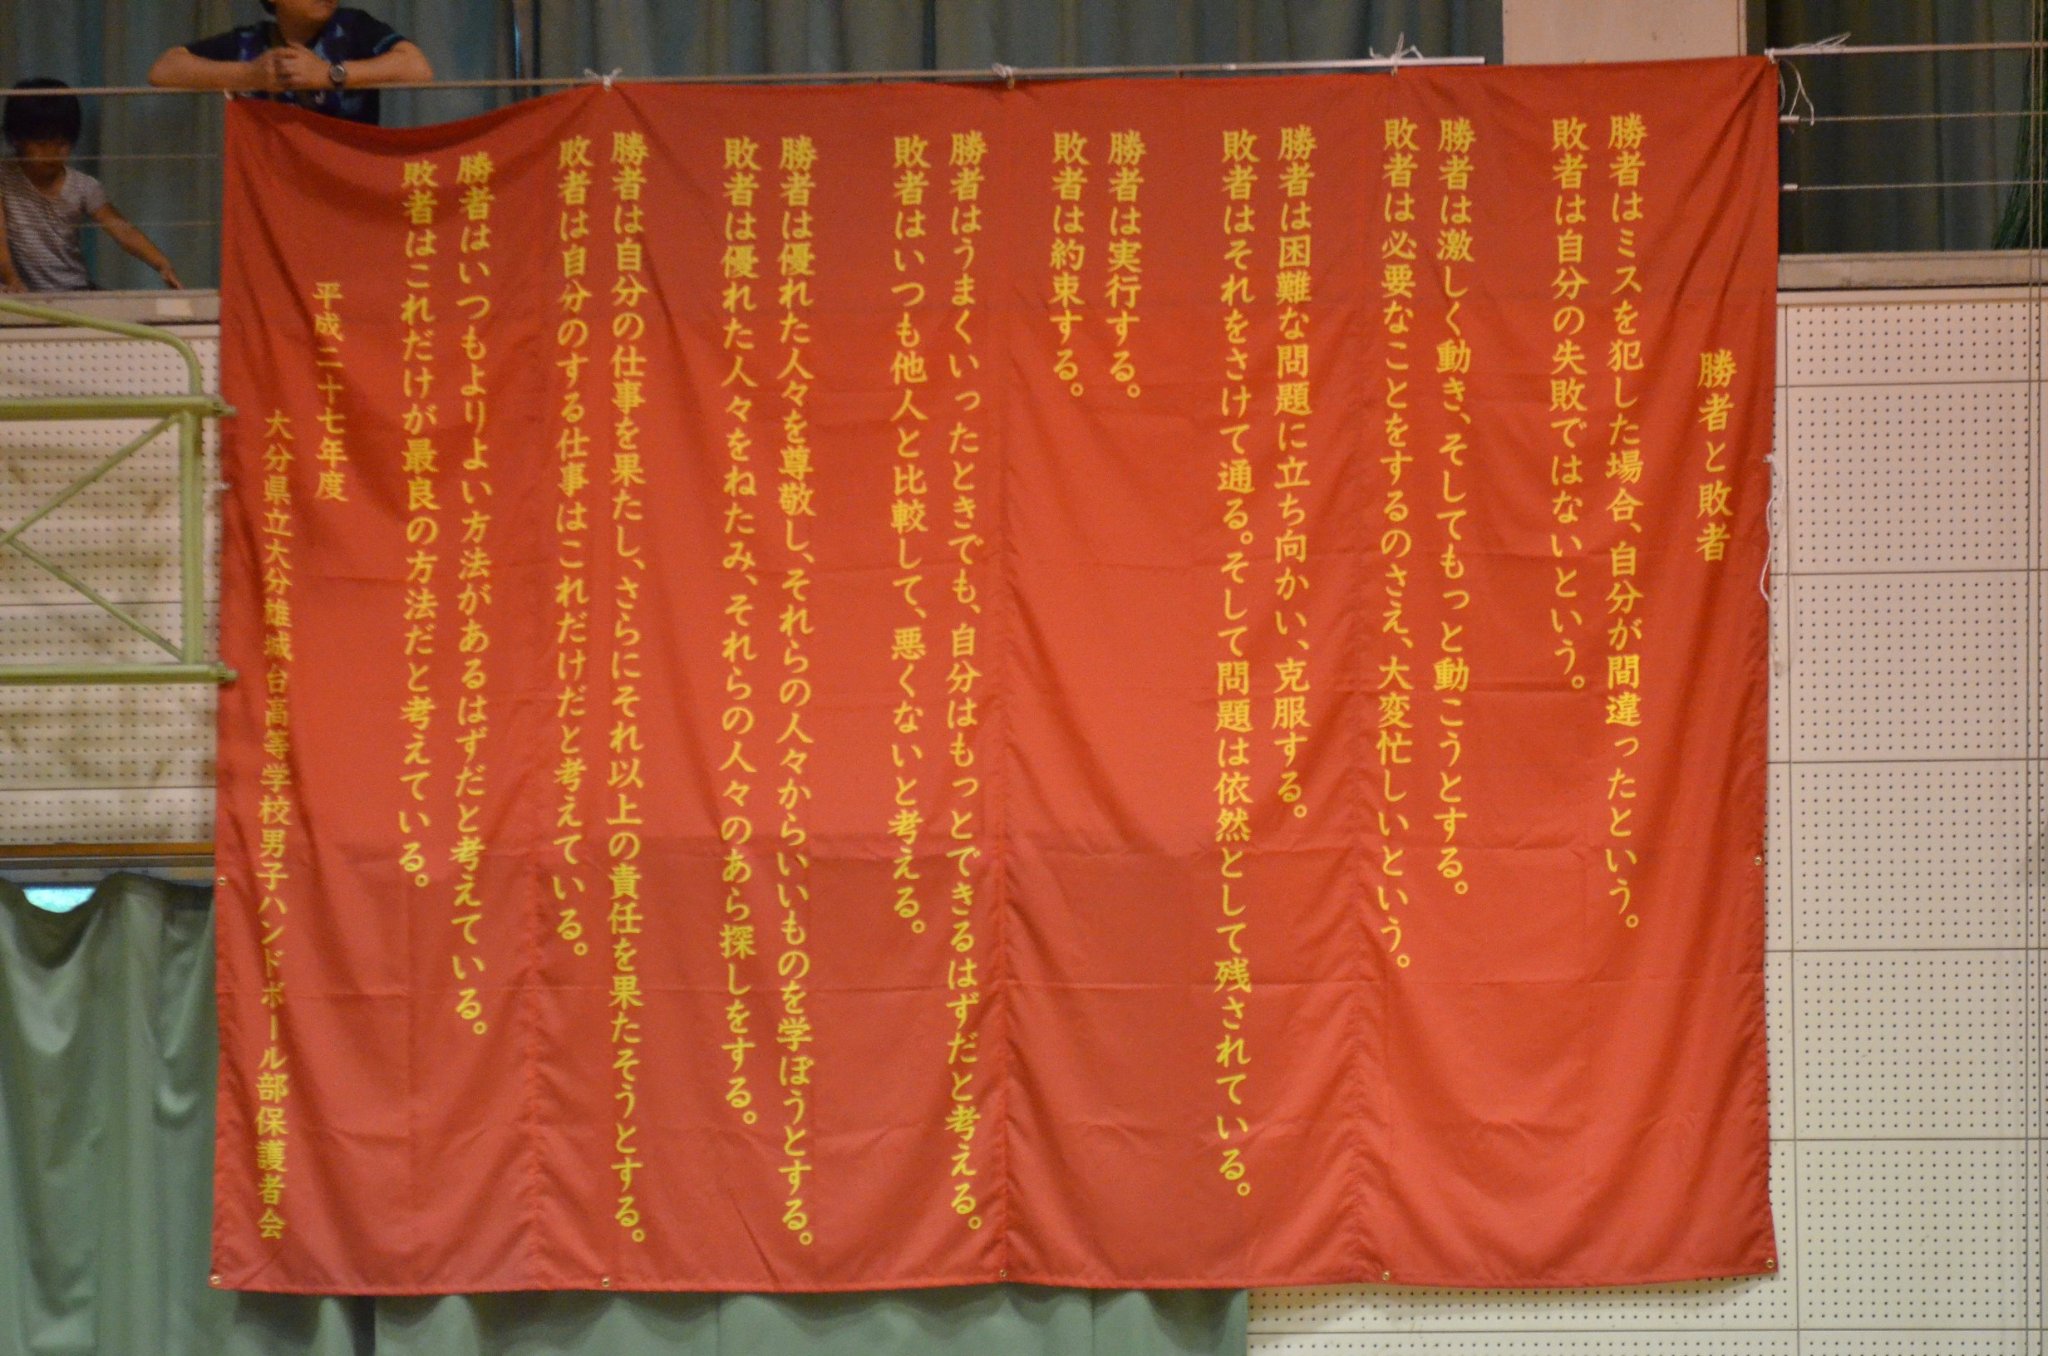 勝者と敗者
勝者はミスを犯した場合、自分が間違ったという。
敗者は自分の失敗ではないという。
勝者は激しく動き、そしてもっと動こうとする。
敗者は必要なことをするのさえ、大変忙しいという。
勝者は困難な問題に立ち向かい、克服する。
敗者はそれをさけて通る。そして問題は依然として残されている。
勝者は実行する。
敗者は約束する。
勝者はうまくいったときでも、自分はもっとできるはずだと考える。
敗者はいつも他人と比較して、悪くないと考える。
勝者は優れた人々を尊敬し、それらの人々からいいものを学ぼうとする。
敗者は優れた人々をねたみ、それらの人々のあら探しをする。
勝者は自分の仕事を果たし、さらにそれ以上の責任を果たそうとする。
敗者は自分のする仕事はこれだけだと考えている。
勝者はいつもよりよい方法があるはずだと考えている。
敗者はこれだけが最良の方法だと考えている。
平成二十七年度
大分県立大分雄城台高等学校男子ハンドボール部保護者会